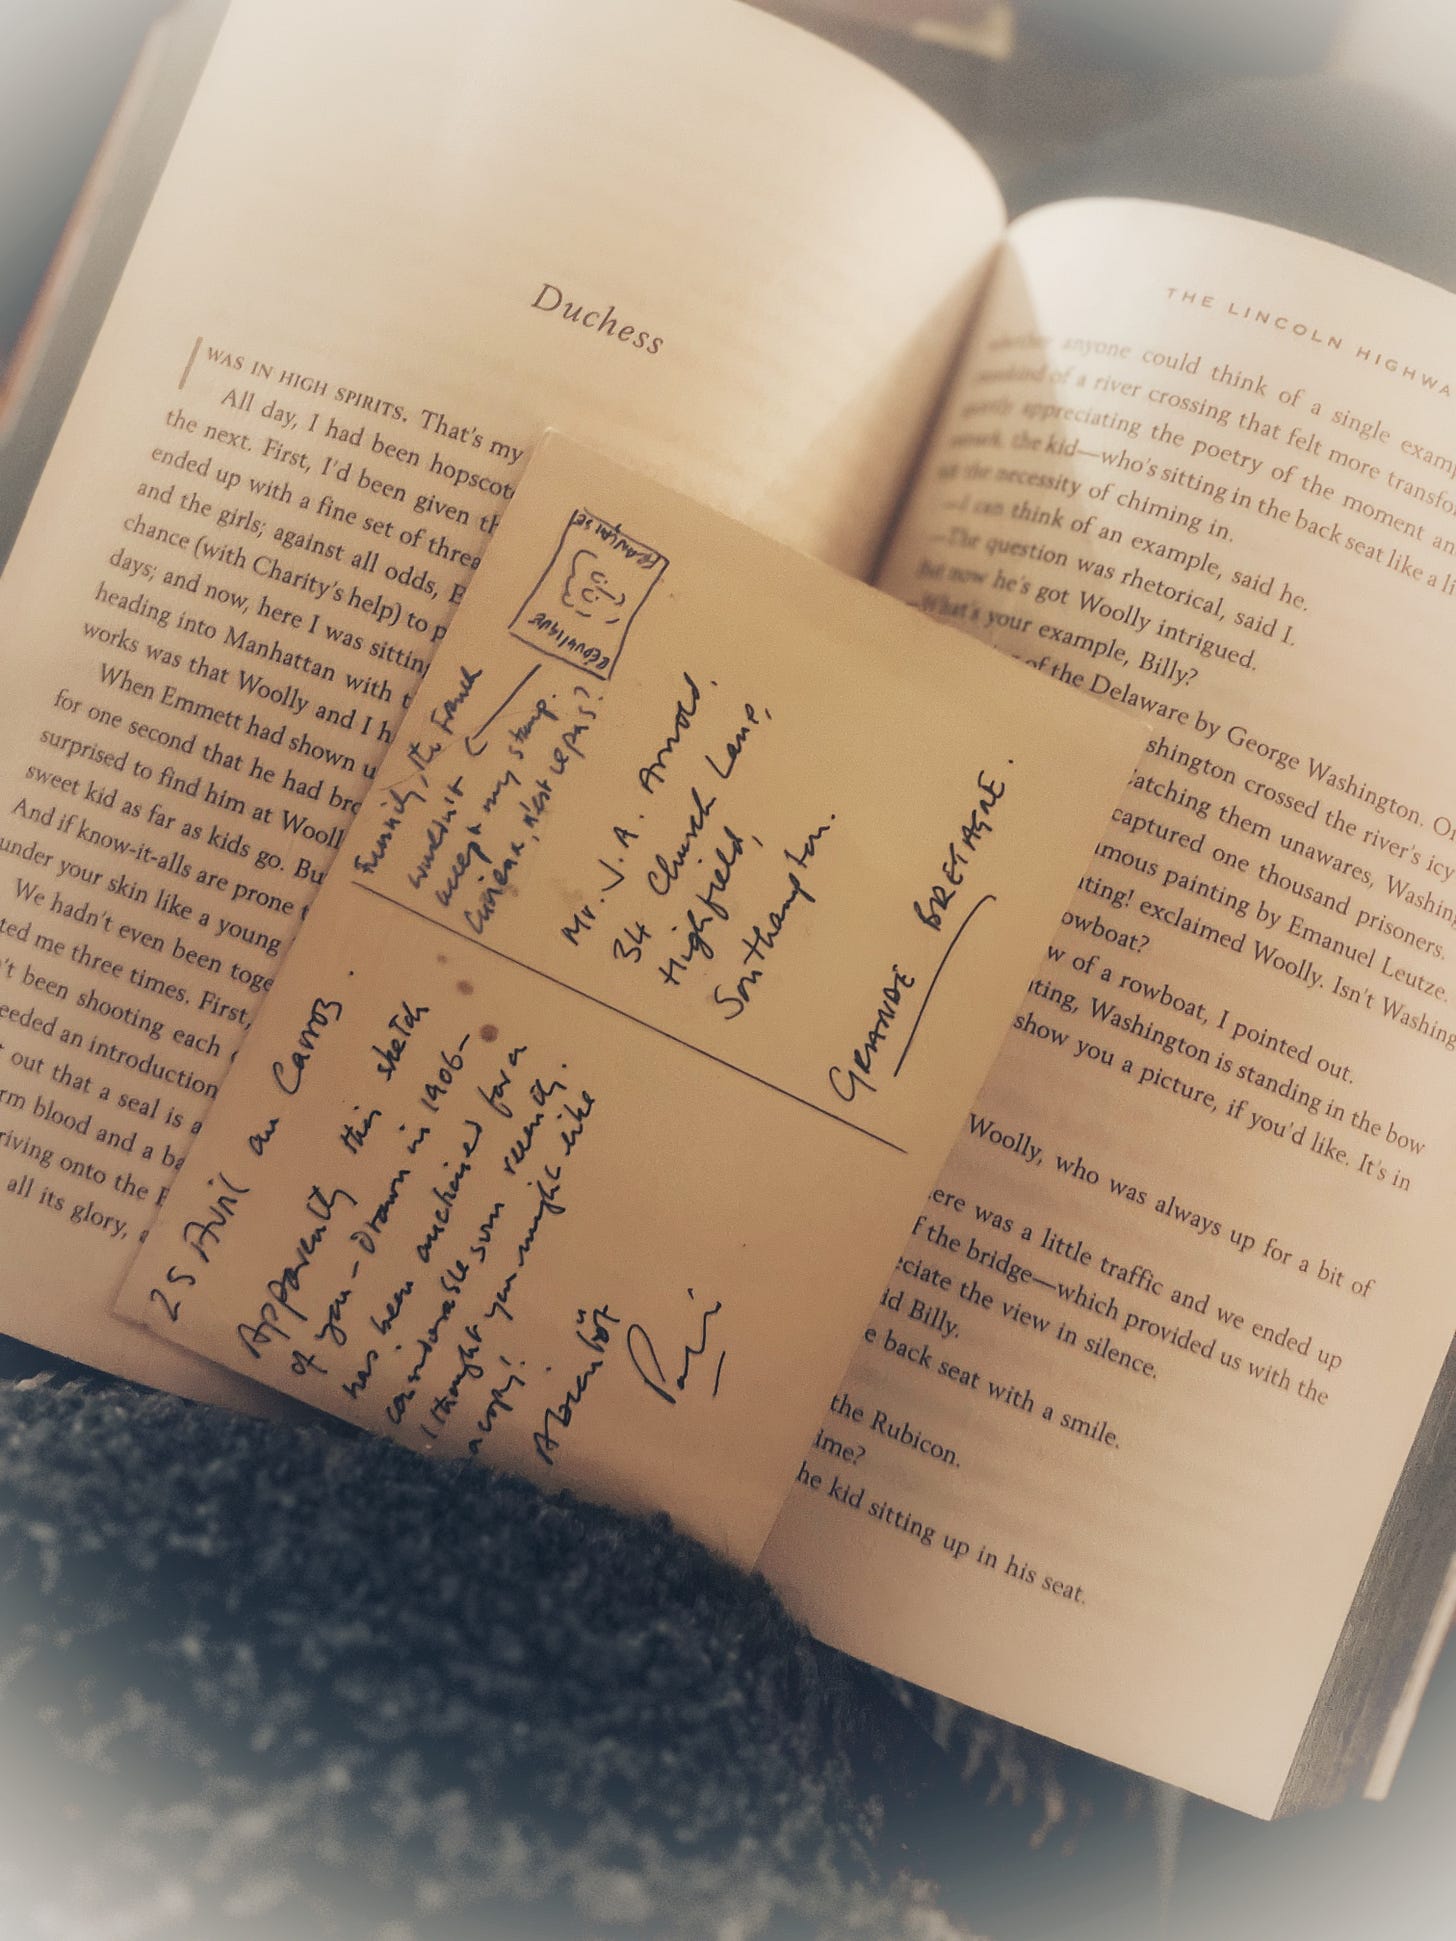 Duchess
I WAS IN HIGH SPIRITS. That's my
All day, I had been hopscot
the next. First, I'd been given th
ended up with a fine set of threa
and the girls; against all odds, E
chance (with Charity's help) to p
days; and now, here I was sittin
heading into Manhattan with
works was that Woolly and I h
When Emmett had shown u
for one second that he had bro
surprised to find him at Wooll
sweet kid as far as kids go. Bu
And if know-it-alls are prone t
under your skin like a young
We hadn't even been toge
ted me three times. First,
't been shooting each
eeded an introduction
out that a seal is a
rm blood and a ba
riving onto the
all its glory,
RÉPUBLIQUE
FRANÇAISE
Funnily, the French
wouldn't
accept my stamp.
Curieux, n'est ce pas?
Mr. V. A. Arnold.
34 Church Lane,
Highfield,
Southampton.
GRANDE BRETAGNE.
25 Avril au Carroz.
Apparently this sketch
of you - Drawn in 1906 -
has been auctioned for a
considerable sum recently.
I thought you might like
a copy!
A bientôt
THE LINCOLN HIGHWA
whether anyone could think of a single examp
mankind of a river crossing that felt more transfo
quietly appreciating the poetry of the moment an
remark, the kid—who's sitting in the back seat like a li
the necessity of chiming in.
—I can think of an example, said he.
—The question was rhetorical, said I.
But now he's got Woolly intrigued.
—What's your example, Billy?
of the Delaware by George Washington. O
shington crossed the river's icy
atching them unawares, Washing
captured one thousand prisoners.
amous painting by Emanuel Leutze.
ting! exclaimed Woolly. Isn't Washing
owboat?
w of a rowboat, I pointed out.
ting, Washington is standing in the bow
show you a picture, if you'd like. It's in
Woolly, who was always up for a bit of
ere was a little traffic and we ended up
f the bridge—which provided us with the
eciate the view in silence.
id Billy.
e back seat with a smile.
the Rubicon.
ime?
he kid sitting up in his seat.